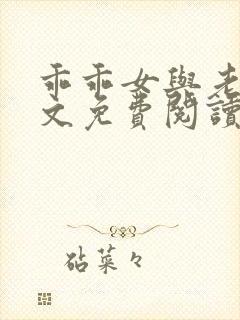 乖乖女與老
文免費閱讀
砧菜々